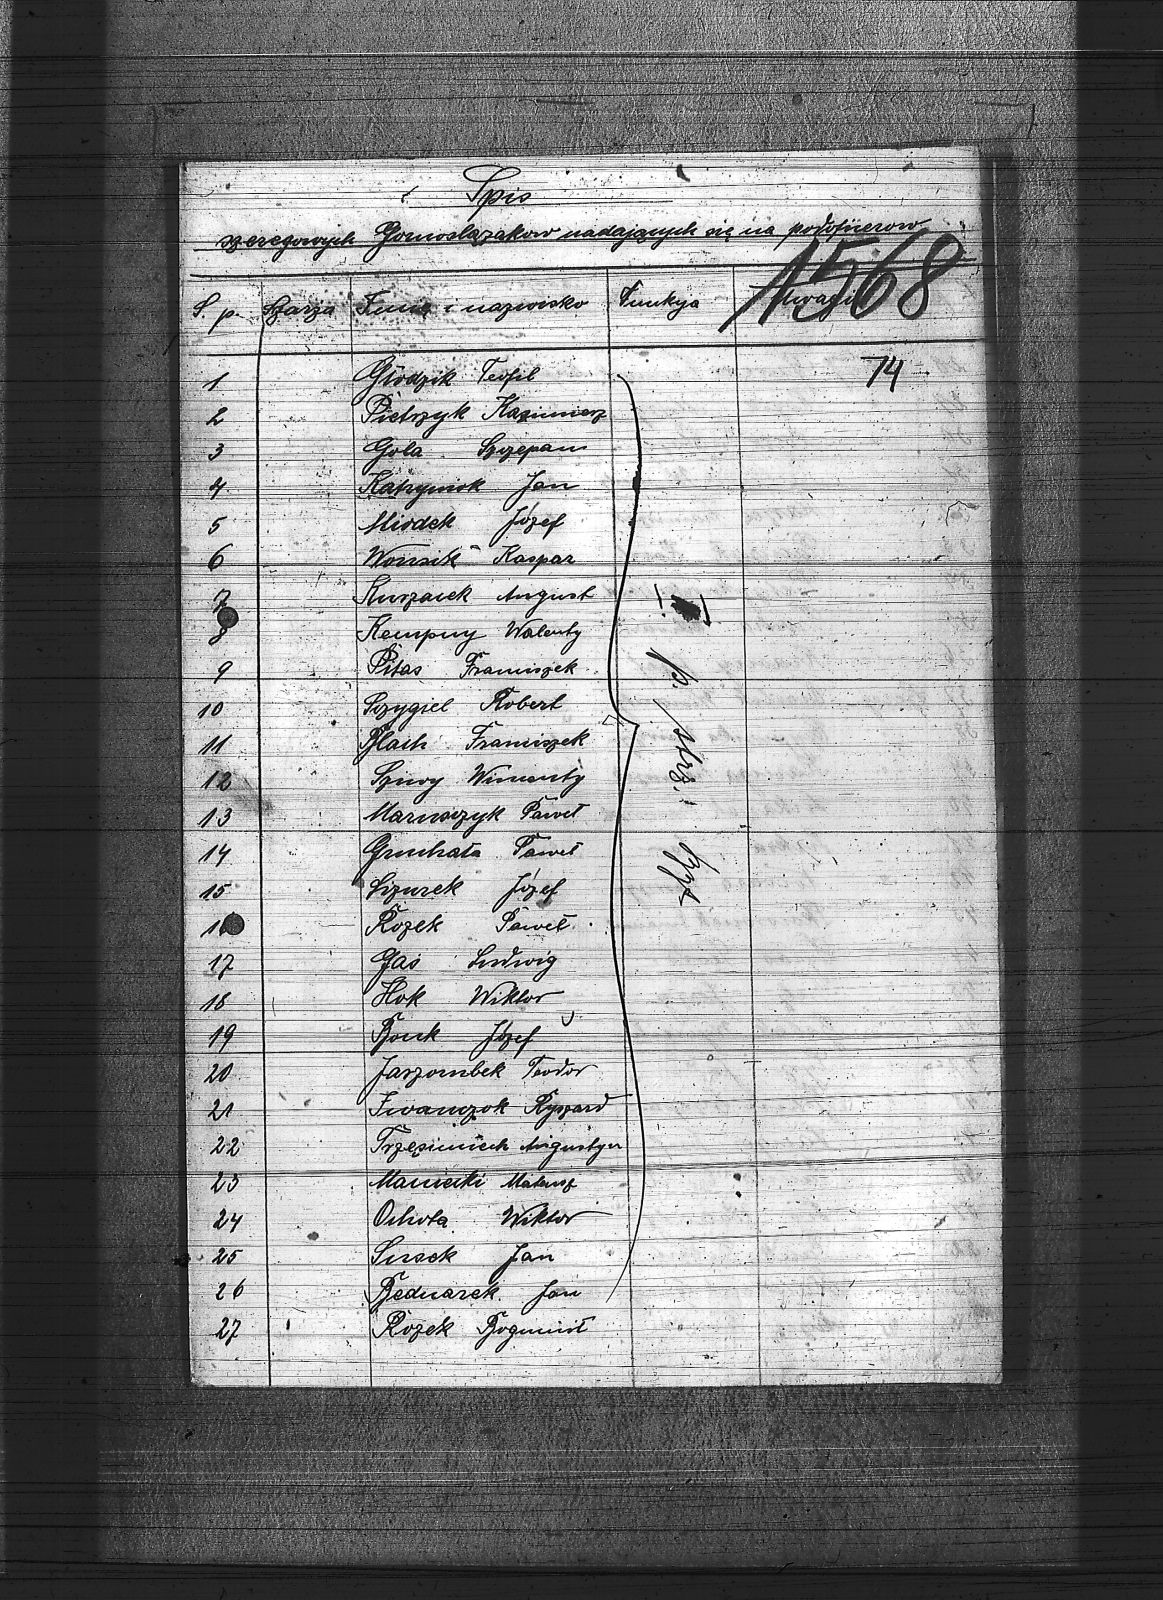 Spis
szeregowych Gornoslązaków nadających się na podoficerow
1568
L. p. Szarża Imię i nazwisko Funkcja Uwagi
74
1 Głodzik Teofil
2 Pietrzyk Kazimierz
3 Gola Szczepan
4 Katryniok Jan
5 Miodek Józef
6 Wonsik Kaspar
7 August
8 Kempny Walenty
9 Pitas Franciszek
10 Szygiel Robert
11 Blach Franciszek
12 Wincenty
13 Marusczyk Paweł
14 Gruchała Paweł
15 Józef
16 Rozek Paweł
17 Gaś Ludwig
18 Hok Wiktor
19 Bonk Józef
20 Jarzombek Teodor
21 Iwanczok Ryszard
22 Augustyn
23 Maniecki Mateusz
24 Ochota Wiktor
25 Jan
26 Bednarek Jan
27 Rozek Bogumił
p. strz.